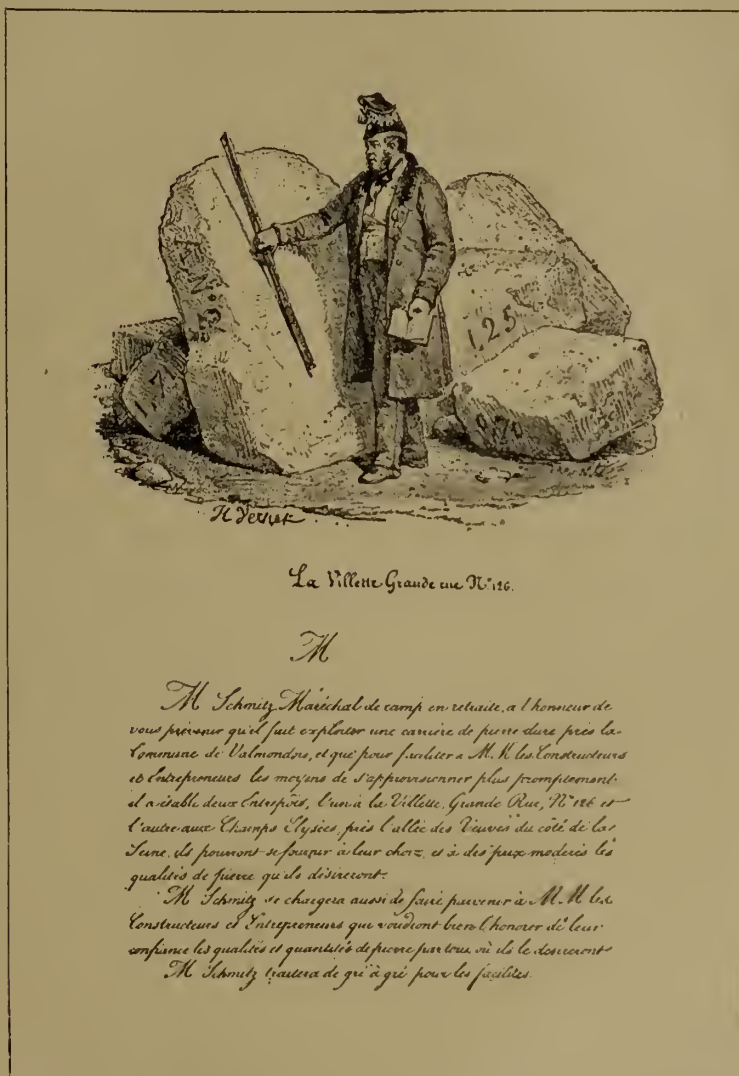 1,25
0,70
H Vernet
La Villette Grande rue N° 126.
M
M Schmitz, Maréchal de camp en retraite, a l'honneur de
vous prévenir qu'il fait exploiter une carrière de pierre dure près la
Commune de Valmondois, et que pour faciliter a M. M les Constructeurs
et Entrepreneurs les moyens de s'approvisionner plus promptement
il a établé deux Entrepôts, l'un à la Villette, Grande Rue, N° 126 et
l'autre aux Champs Elysées, près l'allée des Veuves du côté de la
Seine, ils pourront se fournir à leur choix, et à des prix modérés les
qualités de pierre qu'ils désireront.
M Schmitz se chargera aussi de faire parvenir à M. M les
Constructeurs et Entrepreneurs qui voudront bien l'honorer de leur
confiance les qualités et quantités de pierre partout où ils le désireront
M Schmitz traitera de gré à gré pour les facilités.